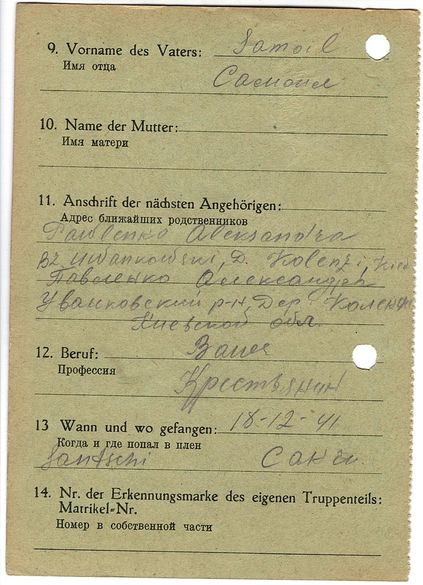 9. Vorname des Vaters: Samoil
Имя отца
Самоил
10. Name der Mutter:
Имя матери
11. Anschrift der nächsten Angehörigen:
Адрес ближайших родственников
Pawlenko Aleksandra
Bz Uwankowski, D. Kolenzi, Kiew
Павленко Александра
Уванковский р-н, Дер. Коленци
Киевской обл.
12. Beruf: Bauer
Профессия
Крестьянин
13 Wann und wo gefangen: 18-12-41
Когда и где попал в плен
Santschi Санчи
14. Nr. der Erkennungsmarke des eigenen Truppenteils:
Matrikel-Nr.
Номер в собственной части